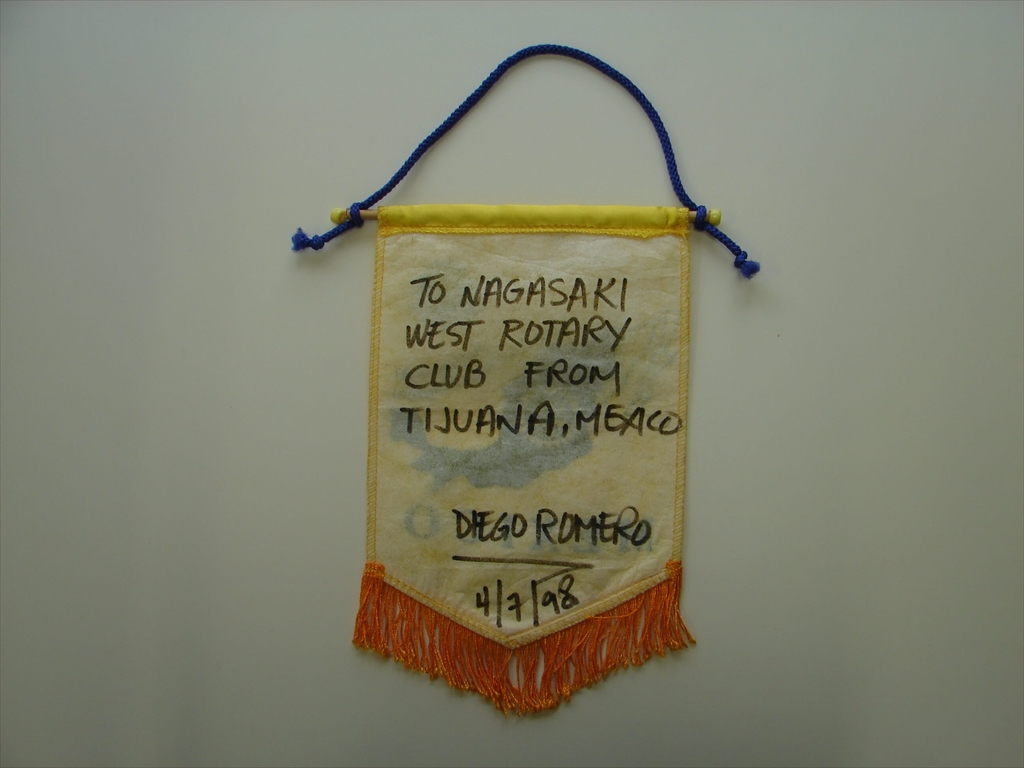 TO NAGASAKI
WEST ROTARY
CLUB FROM
TIJUANA, MEXICO
DIEGO ROMERO
4/7/98